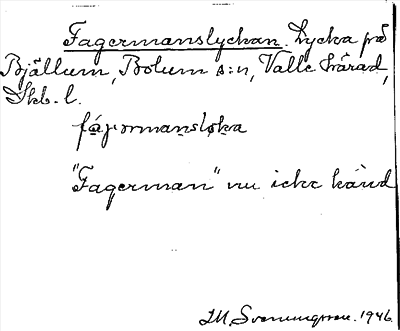 Fagermanslyckan. Lycka på
Bjällum, Bolum s:n, Valle härad,
Skb. l.
"Fagerman" nu icke känd
I.M. Svenungsson. 1946.